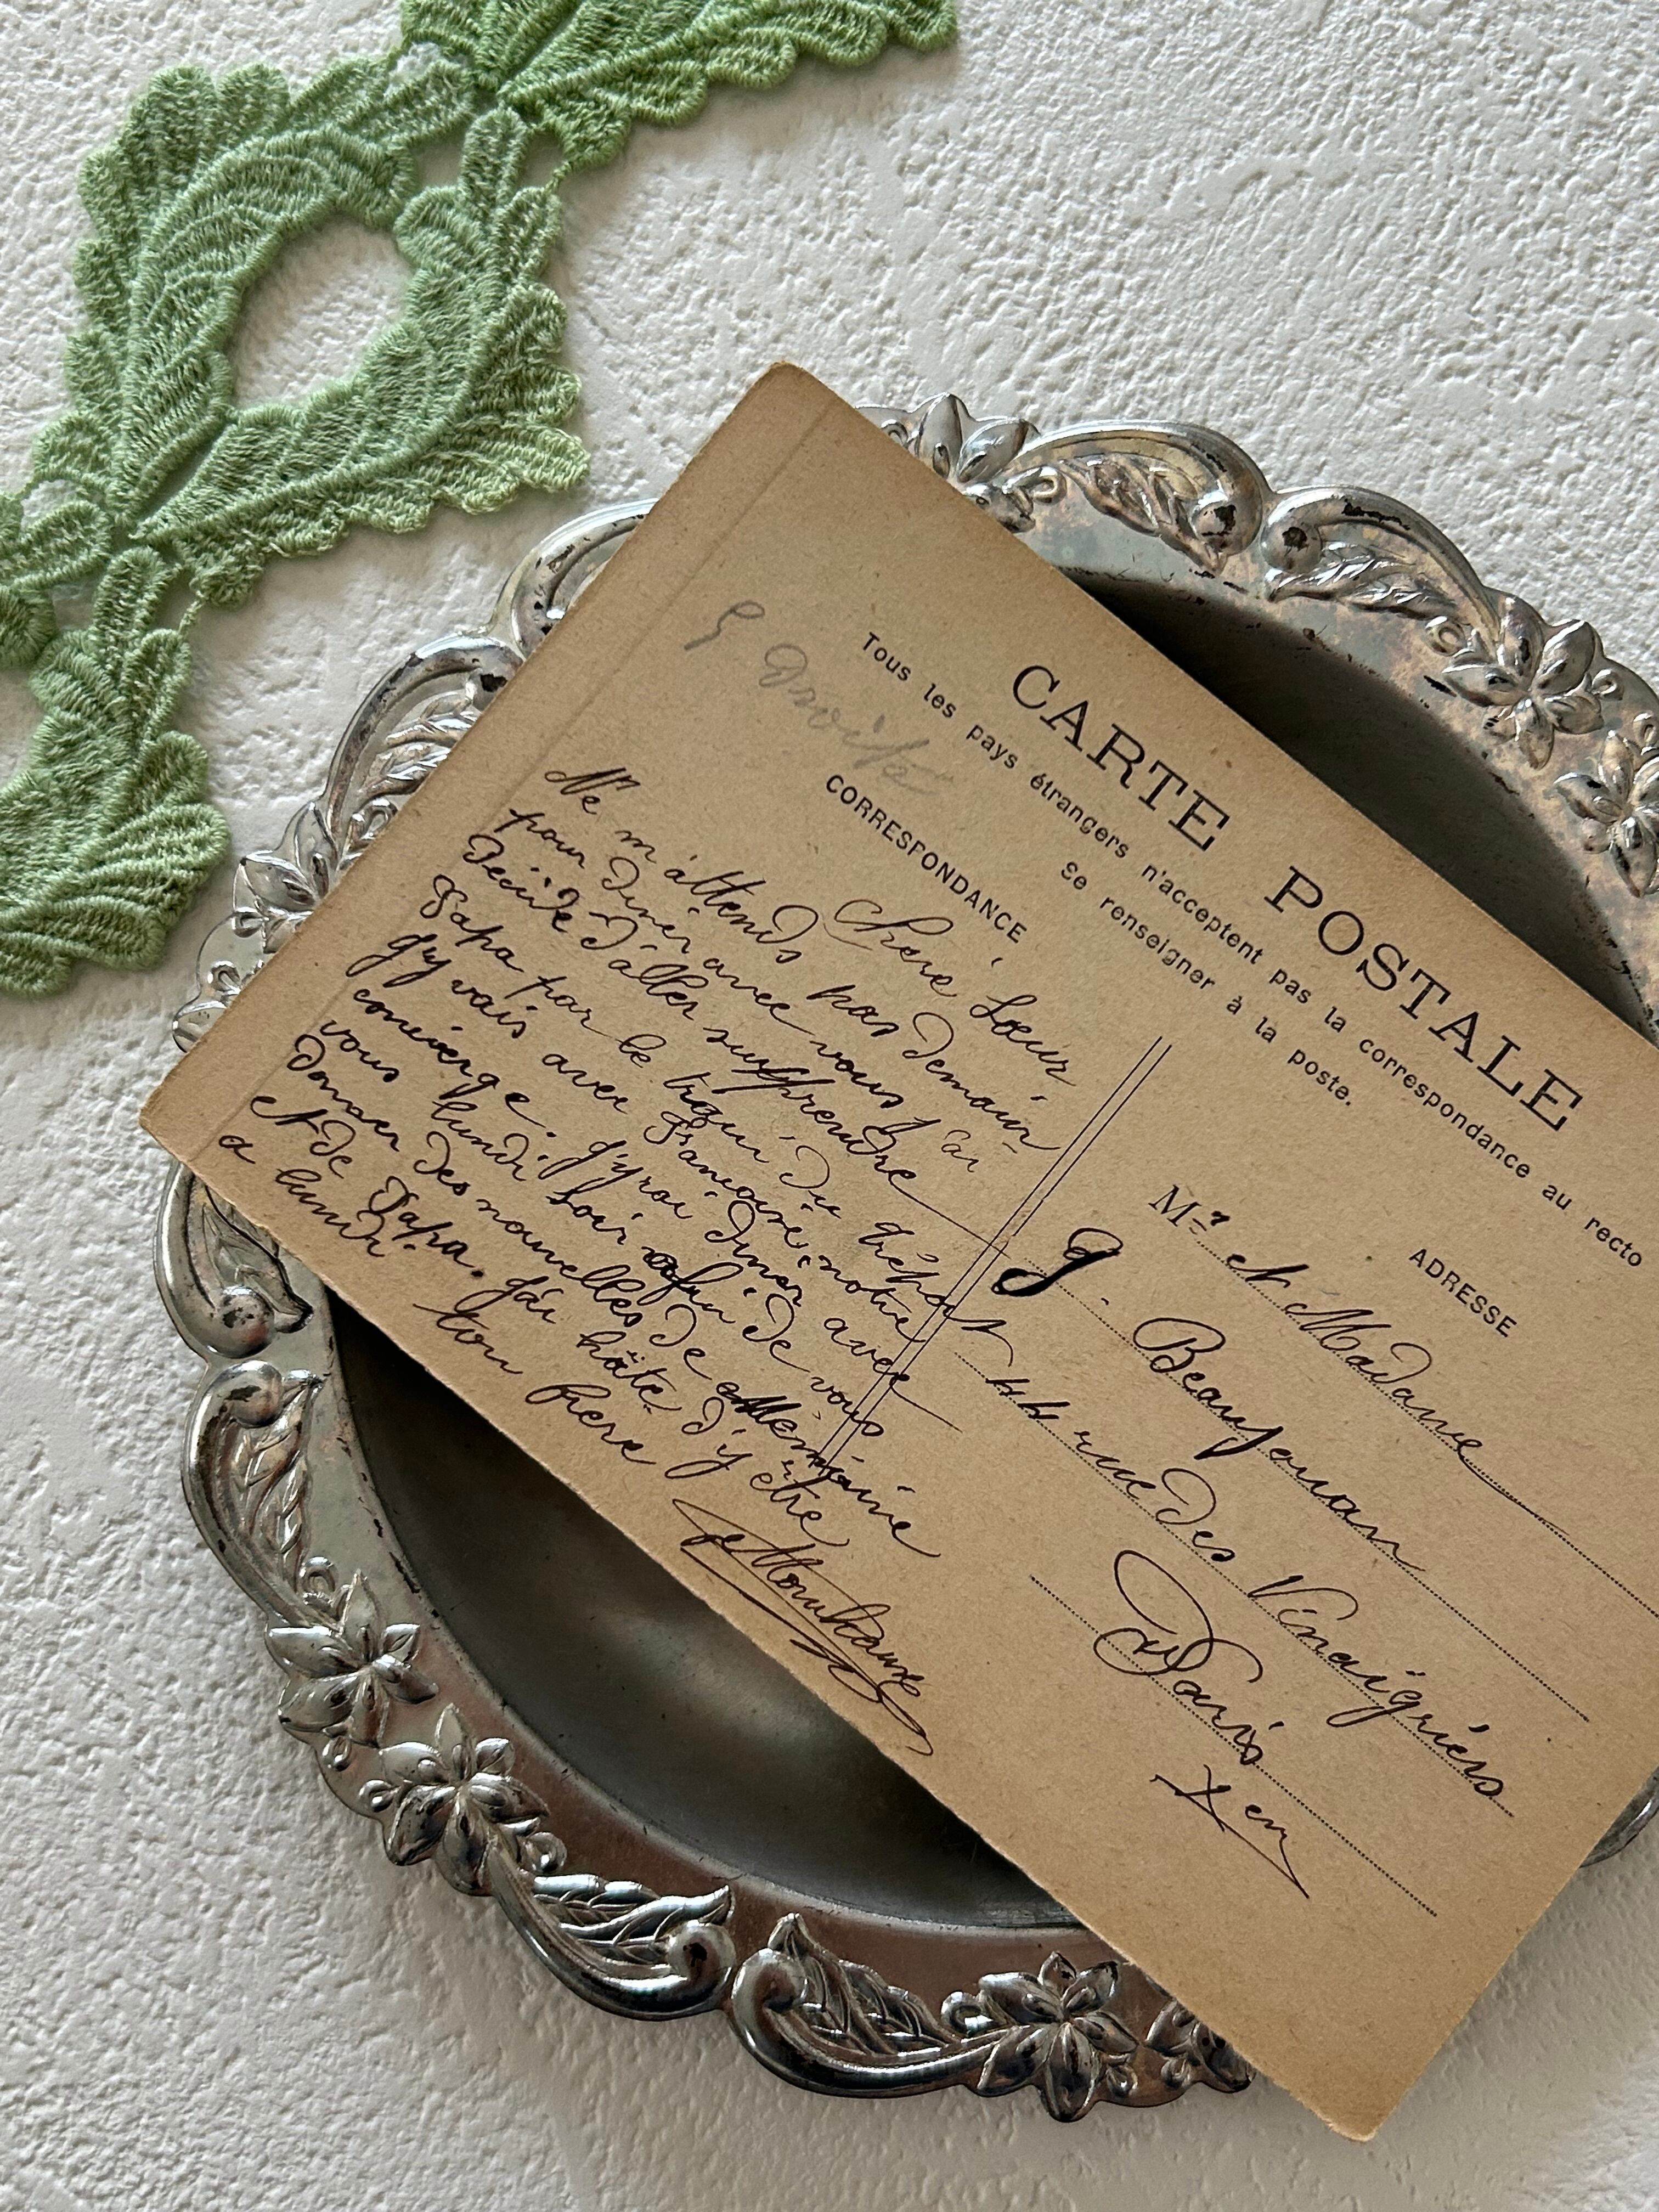 CARTE POSTALE
Tous les pays étrangers n'acceptent pas la correspondance au recto
Se renseigner à la poste.
CORRESPONDANCE
ADRESSE
Chère Sœur
Ne m'attends pas demain
pour diner avec vous j'ai
décidé d'aller surprendre
Papa par le train du
j'y vais avec notre
concierge. j'irai diner avec
vous lundi soir afin de vous
donner des nouvelles de
et de Papa. j'ai hâte d'y être
a lundi.
ton frere
Mr et Madame
G. Beaujouan
44 rue des Vinaigriers
Paris
Xem